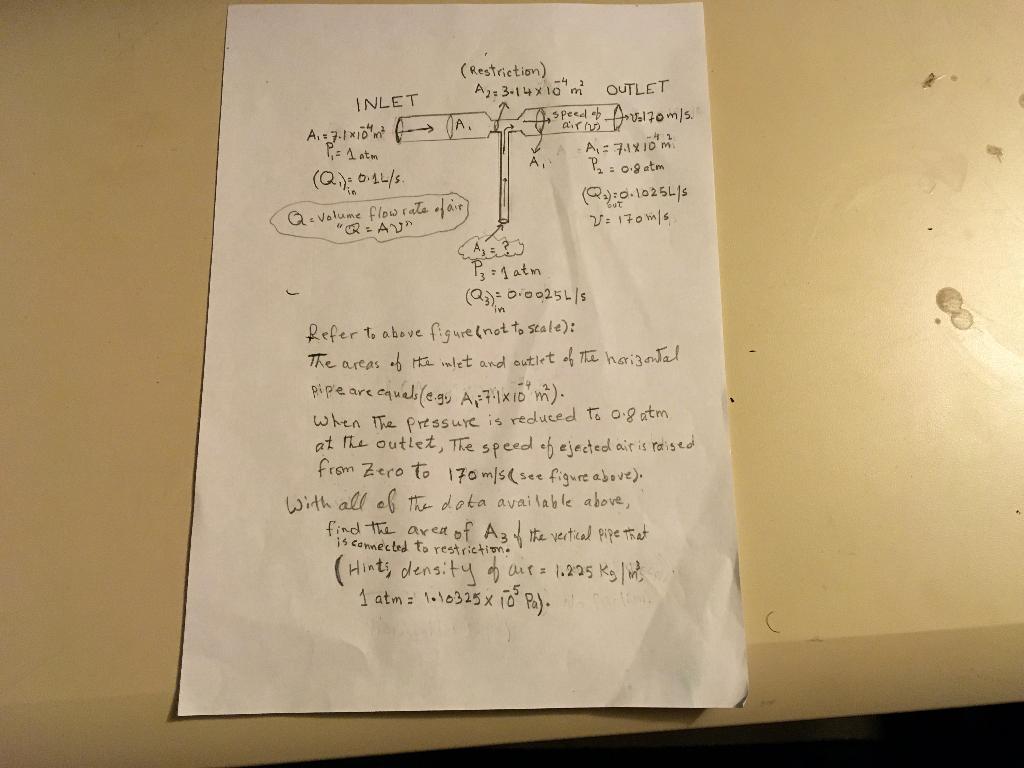 (Restriction)
A₂=3.14×10⁻⁴ m²
OUTLET
INLET
A₁=7.1×10⁻⁴m²
P₁=1 atm
(Q₁)in=0.1L/s.
Q=volume flow rate of air
"Q=AV"
A₁
speed of
air(v)
v=170m/s.
A₁
A₁=7.1×10⁻⁴m²
P₂=0.8atm
(Q₂)out=0.1025L/s
v=170m/s
A₃=?
P₃=1atm
(Q₃)in=0.0025L/s
Refer to above figure(not to scale):
The areas of the inlet and outlet of the horizontal
pipe are equals(e.g, A₁=7.1×10⁻⁴ m²).
when The pressure is reduced To 0.8atm
at the outlet, The speed of ejected air is raised
from Zero To 170m/s(see figure above).
With all of The data available above,
find The area of A₃ of the vertical pipe that
is connected to restriction.
(Hint; density of air = 1.225 Kg/m³,
1 atm = 1.10325×10⁻⁵ Pa).